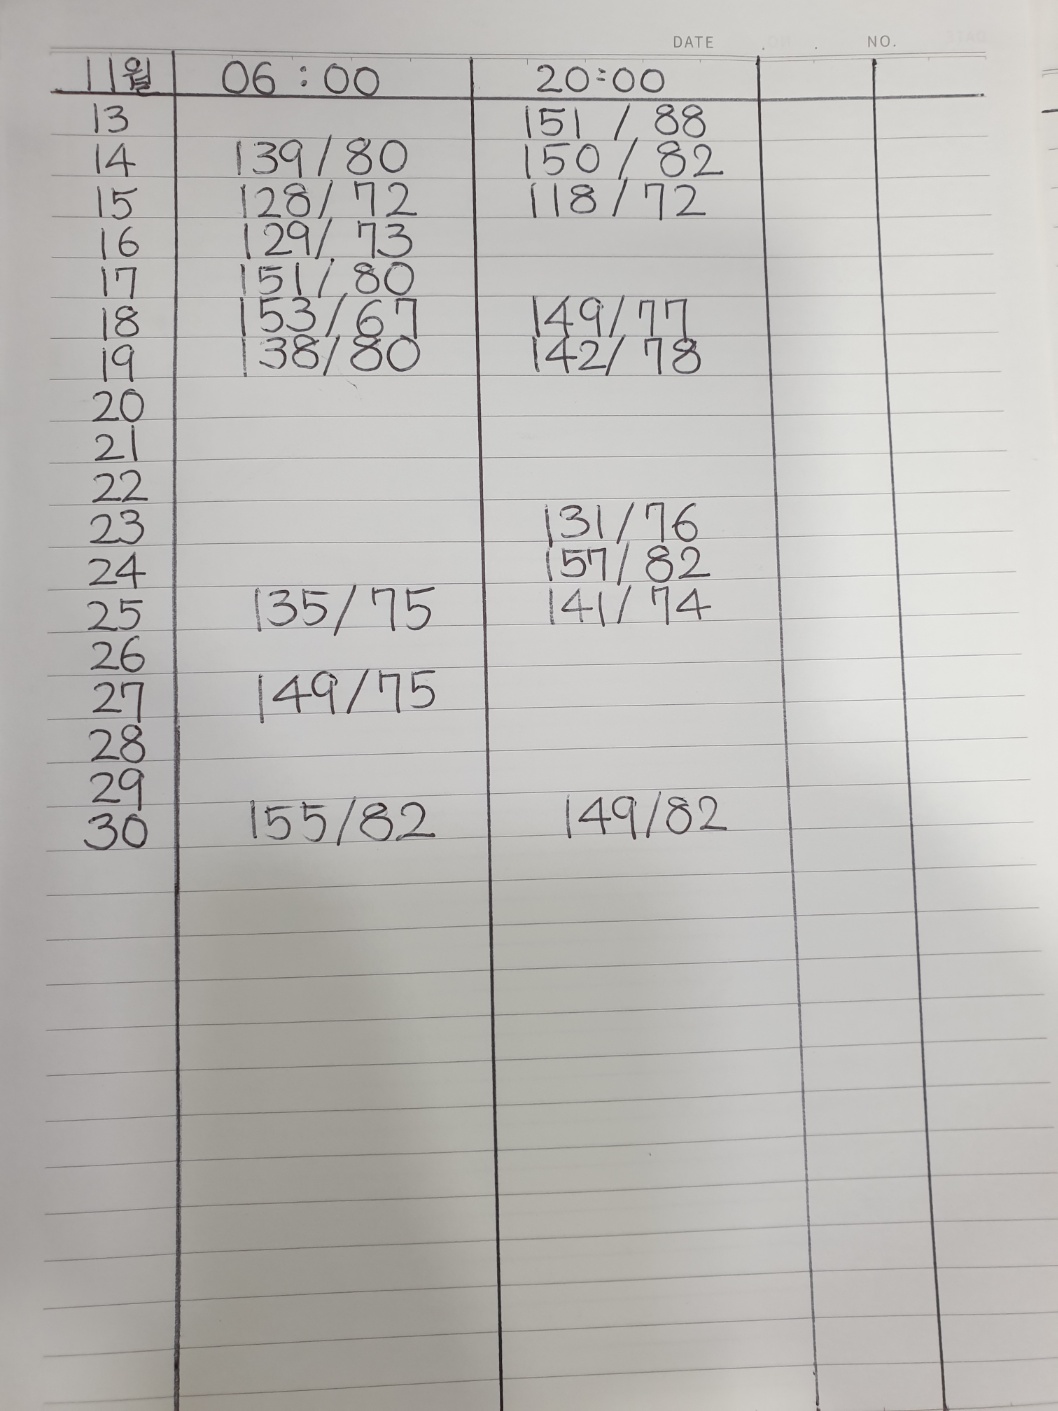 DATE . . NO.
11월 06:00 20:00
13 151 / 88
14 139/80 150 / 82
15 128/72 118/72
16 129/73
17 151/80
18 153/67 149/77
19 138/80 142/78
20
21
22
23 131/76
24 157/82
25 135/75 141/74
26
27 149/75
28
29
30 155/82 149/82